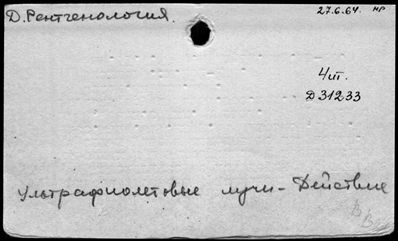 Д. Рентгенология.
27.6.64. НР
4ит.
Д 31233
Ультрафиолетовые лучи - Действие